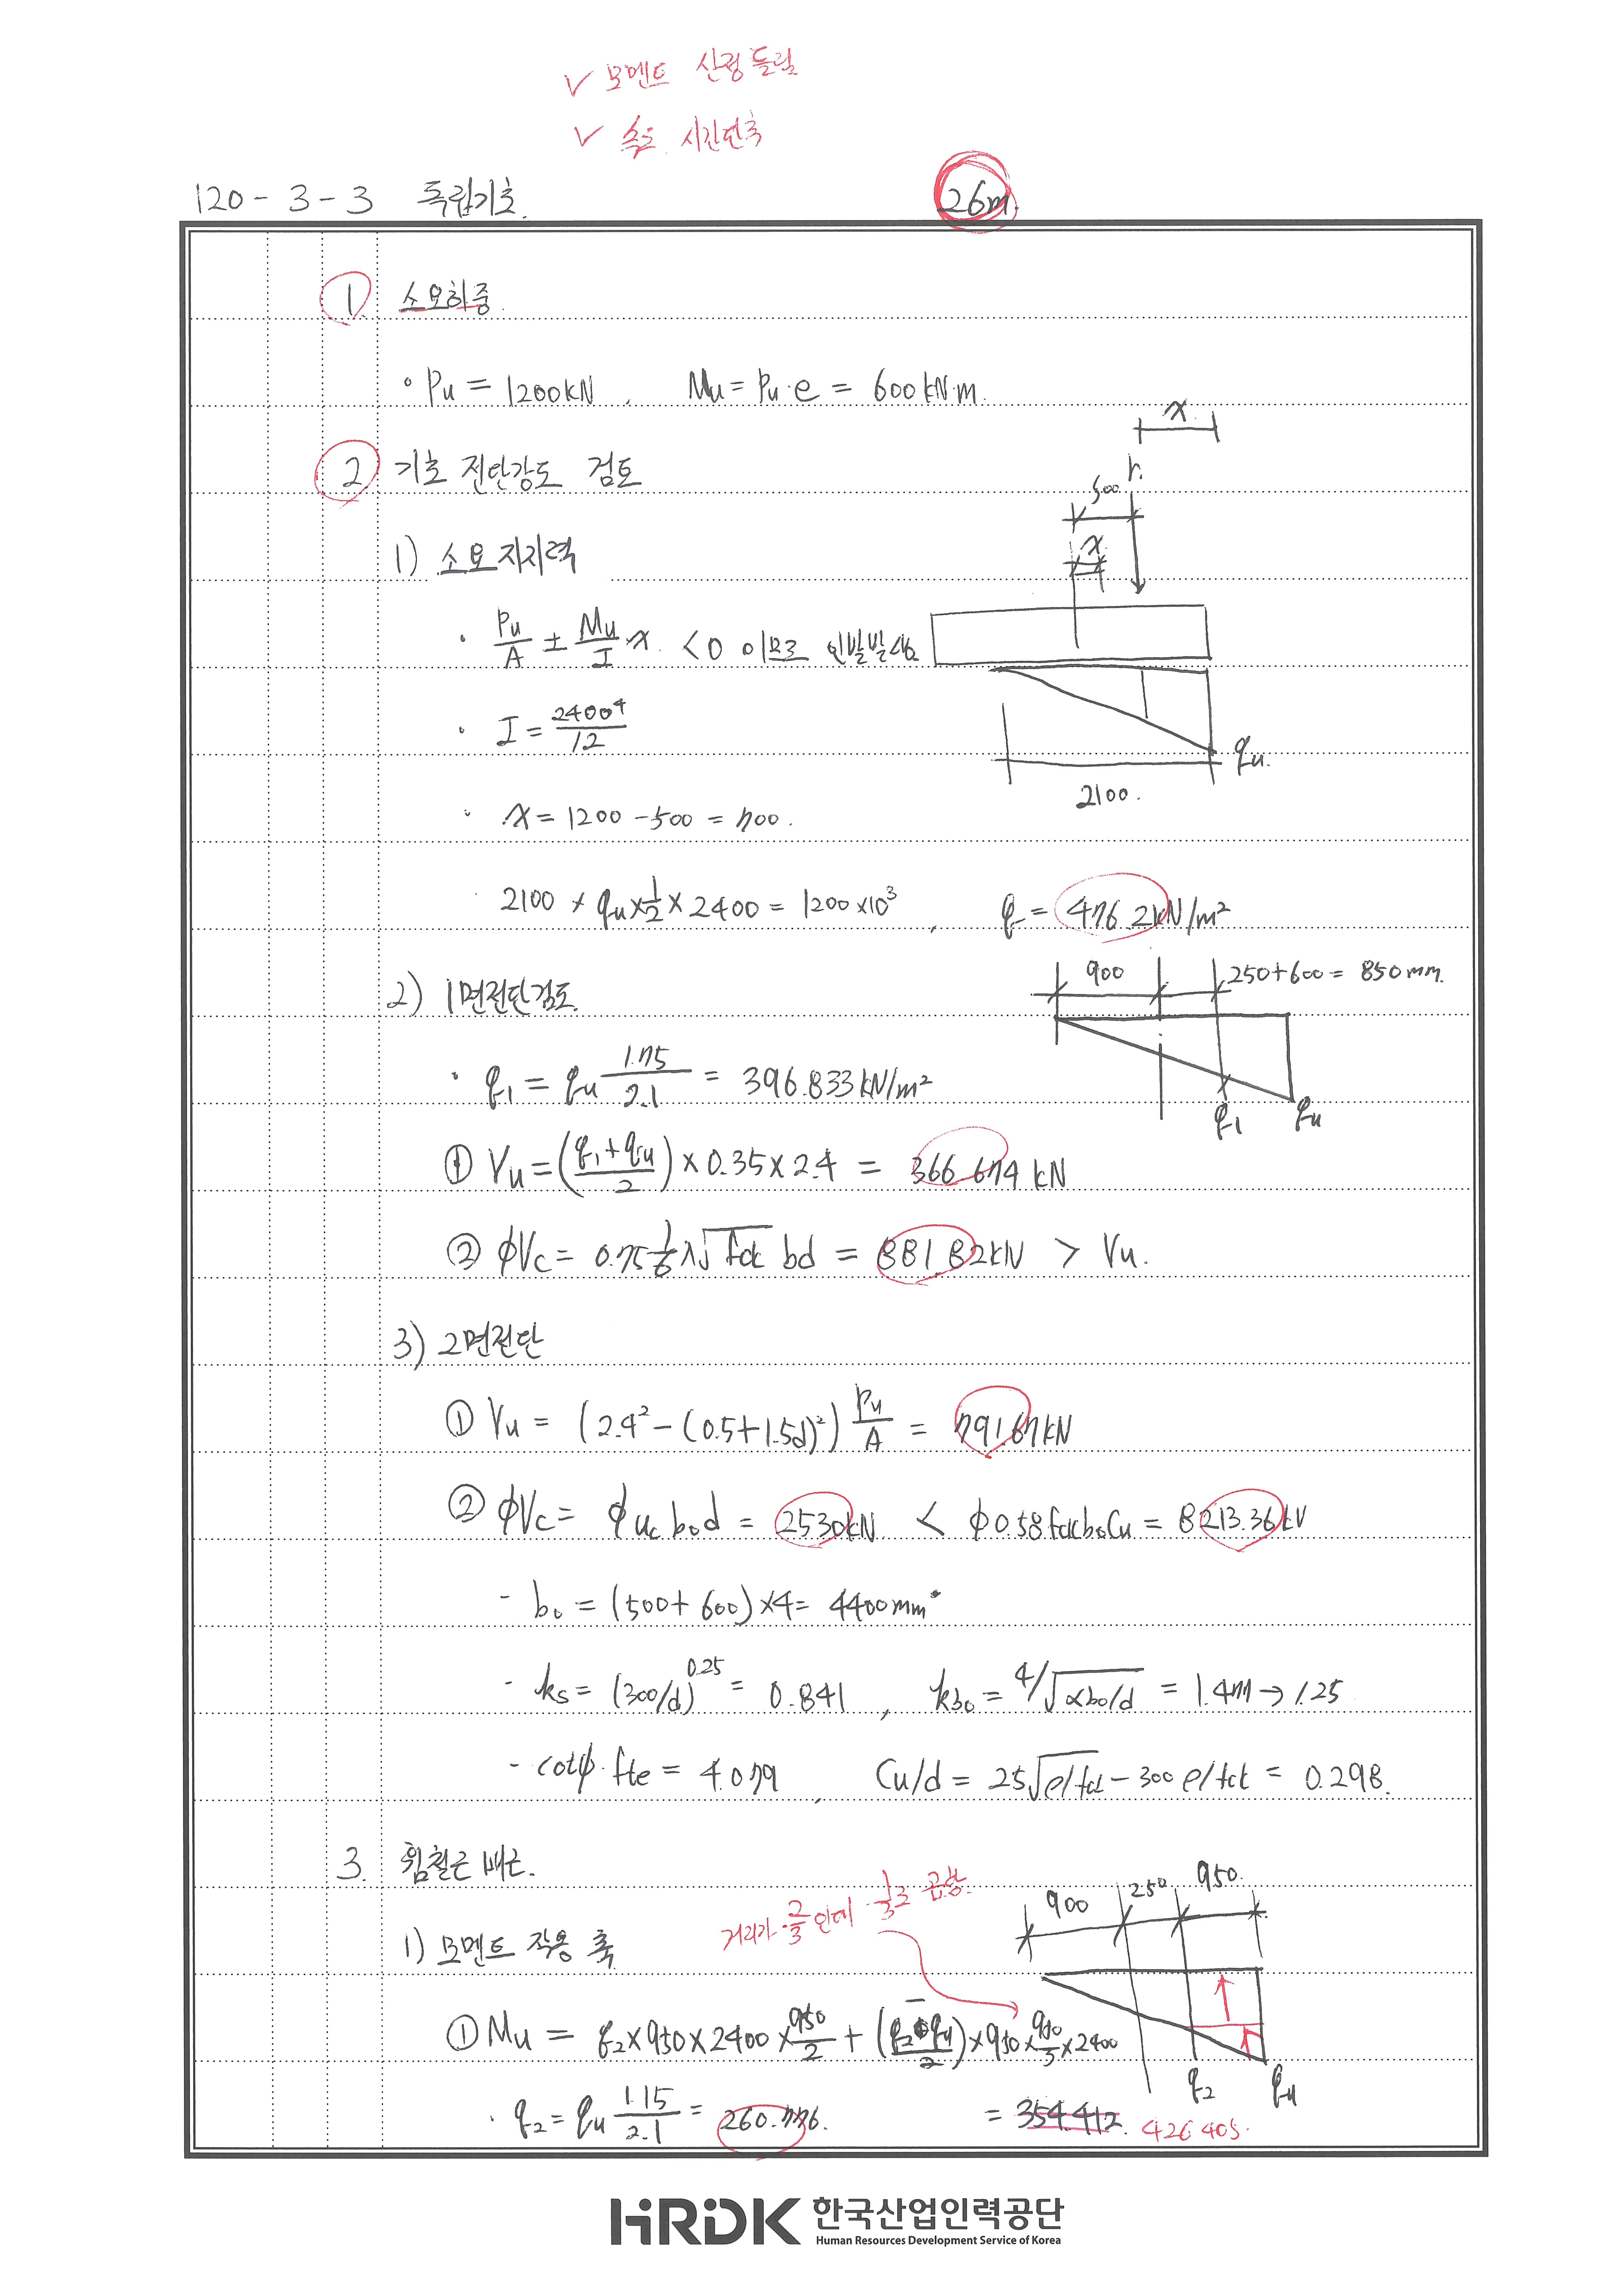 ✓ 모멘트 산정 틀림
✓ 속도 시간단축
120-3-3 독립기초. 26m.
1. 소요하중
• Pu = 1200kN, Mu = Pu·e = 600kN·m.
x
2 기초 전단강도 검토
500 P.
1) 소요지지력
x
• Pu/A ± Mu/I x < 0 이므로 인발발생
• I = 2400⁴/12
qu.
2100.
• x = 1200 - 500 = 700.
• 2100 × qu × 1/2 × 2400 = 1200×10³, q = 476.2kN/m²
900 250+600 = 850mm.
2) 1면전단검토.
• q1 = qu 1.75/2.1 = 396.833kN/m²
q1 qu
① Vu = ((q1+qu)/2) × 0.35 × 2.4 = 366.674 kN
② φVc = 0.75 1/6 λ√fck bd = 881.82kN > Vu.
3) 2면전단
① Vu = (2.4² - (0.5+1.5d)²) Pu/A = 791.67kN
② φVc = φ uc b0 d = 2530kN < φ0.58fckb0Cu = 8213.36kN
- b0 = (500+600)×4 = 4400mm
- ks = (300/d)^0.25 = 0.841, kb0 = 4/√(αb0/d) = 1.477 → 1.25
- cotψ·fte = 4.079, Cu/d = 25√(ρ/fck) - 300 ρ/fck = 0.298.
3. 휨철근 배근.
900 250 950.
거리가 2/3 인데 1/3로 곱함.
1) 모멘트 작용 축
① Mu = q2×950×2400×950/2 + ((q2-qu)/2)×950×950/3×2400
q2 qu
• q2 = qu 1.15/2.1 = 260.776. = 354.412. 426.405.
HRDK 한국산업인력공단
Human Resources Development Service of Korea